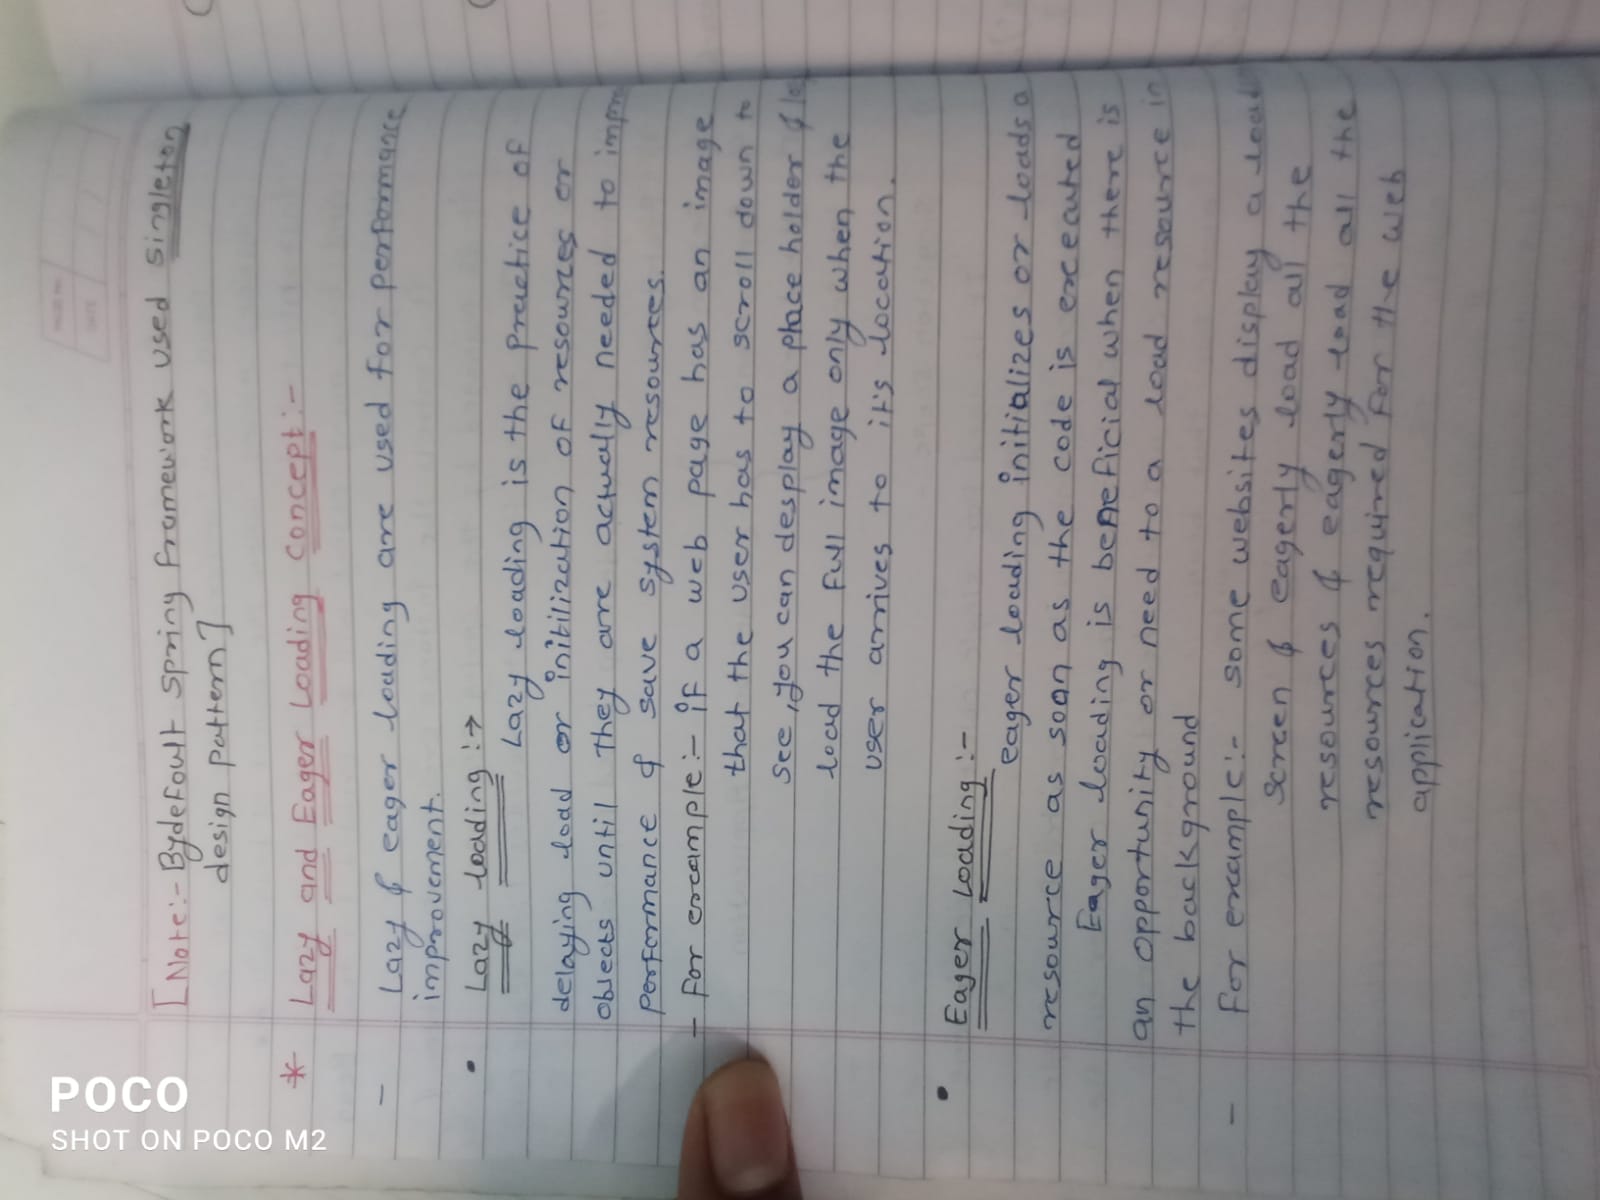 [Note:- Bydefoult Spring Framework used singleton
design pattern]
* Lazy and Eager Loading Concept:-
- Lazy & eager loading are used for performance
improvement.
• Lazy loading :→
Lazy loading is the practice of
delaying load or initilization of resources or
objects until they are actually needed to
performance & save system resources.
- For example:- if a web page has an image
that the user has to scroll down to
see, you can desplay a place holder &
load the full image only when the
user arrives to it's location.
• Eager Loading :-
eager loading initializes or loads a
resource as soon as the code is executed
Eager loading is beneficial when there is
an opportunity or need to a load resource in
the background
- For example:- some websites display a load
screen & eagerly load all the
resources & eagerly load all the
resources required for the web
application.
PAGE NO.
DATE
POCO
SHOT ON POCO M2